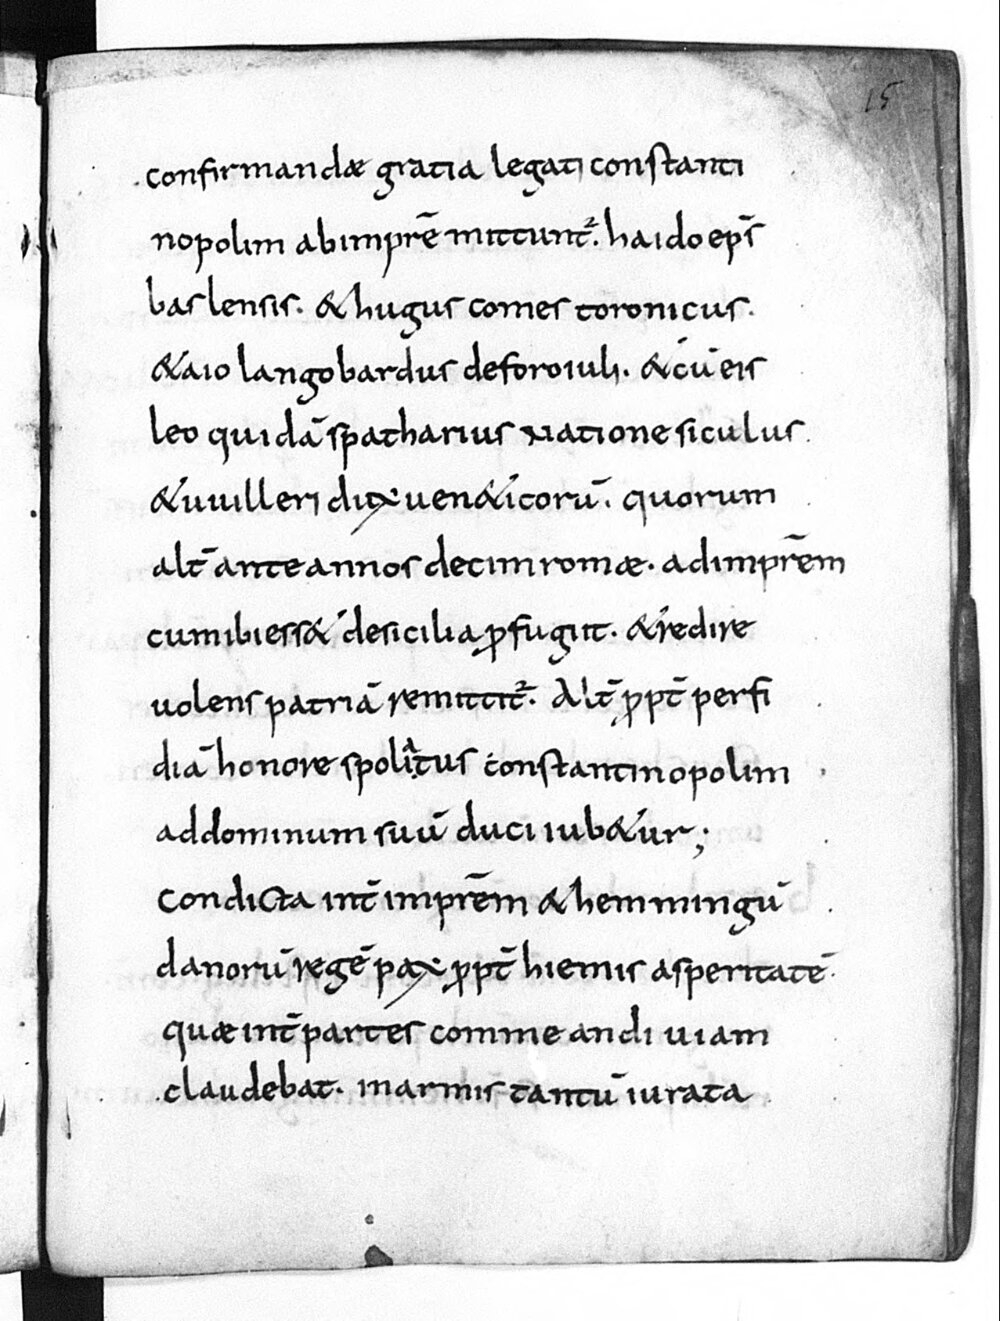 15
confirmandæ gratia legati constanti
nopolim abimprē mittunt᷑. haido eps̄
baslensis. &hugus comes toronicus.
&aio langobardus deforoiuli. &cū eis
leo quidā spatharius Natione siculus.
&uuilleri dux uen&icorū. quorum
alt̄ ante annos decim romæ. adimprēm
cumibiess& desicilia ꝓfugit. &redire
uolens patriā remittit᷑. Alt̄ ꝓpt̄ perfi
diā honore spoliatus constantinopolim
addominum suū duci iub&ur;
Condicta int̄ imprēm &hemmingū
danorū regē pax ꝓpt̄ hiemis asperitatē.
quæ int̄ partes commeandi uiam
claudebat. Inarmis tantū iurata